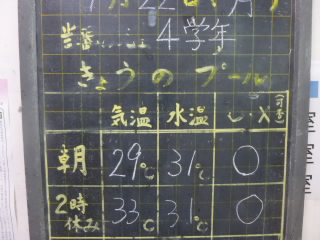 月22日(月)
当番 4学年
きょうのプール
気温 水温 ○・× (可・否)
朝 29℃ 31℃ ○
2時休み 33℃ 31℃ ○